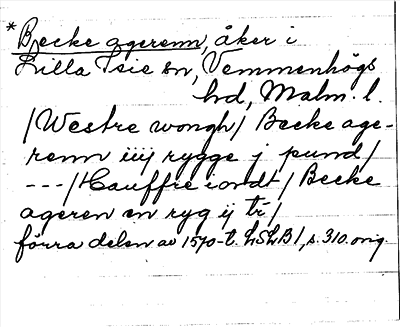 *Becke agerenn, åker i
Lilla Isie sn, Vemmenhögs
hd, Malm. l.
/Westre wongh/ Becke age-
renn iiij rygge j pund/
---/Hauffre iordt/ Becke
ageren en ryg ij tr/
förra delen av 1570-t. LSLB 1, s. 310. orig.